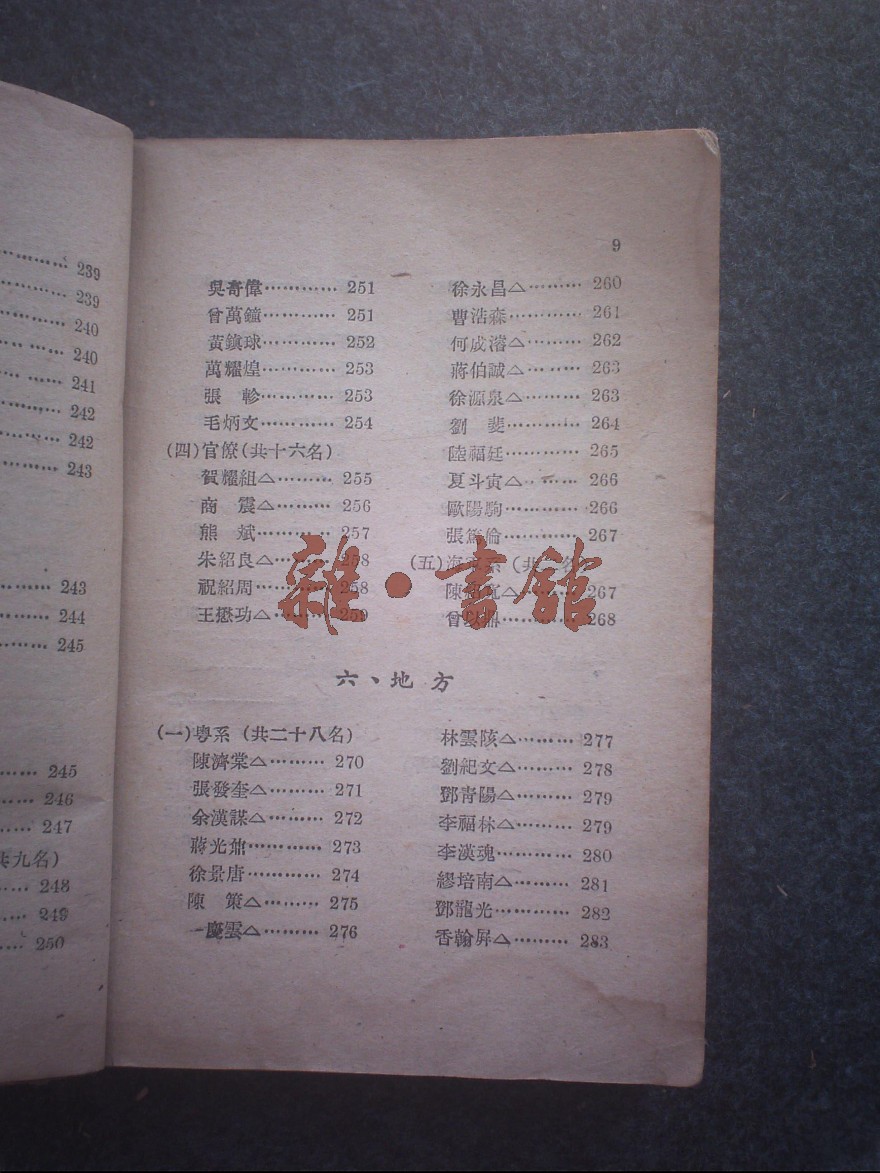 239
239
240
240
241
242
242
243
243
244
245
245
246
247
共九名)
248
249
250
9
吳奇偉………… 251
曾萬鐘………… 251
黃鎮球………… 252
萬耀煌………… 253
張　軫………… 253
毛炳文………… 254
(四)官僚(共十六名)
賀耀組△……… 255
商　震△……… 256
熊　斌………… 257
朱紹良△……… 258
祝紹周………… 258
王懋功△……… 259
徐永昌△……… 260
曹浩森………… 261
何成濬△……… 262
蔣伯誠△……… 263
徐源泉△……… 263
劉　斐………… 264
陸福廷………… 265
夏斗寅△……… 266
歐陽駒………… 266
張篤倫………… 267
(五)海軍系(共 名)
陳 △……… 267
曾以鼎………… 268
雜·書館
六、地方
(一)粵系(共二十八名)
陳濟棠△……… 270
張發奎△……… 271
余漢謀△……… 272
蔣光鼐………… 273
徐景唐………… 274
陳　策△……… 275
慶雲△……… 276
林雲陔△……… 277
劉紀文△……… 278
鄧青陽△……… 279
李福林△……… 279
李漢魂………… 280
繆培南△……… 281
鄧龍光………… 282
香翰屏△……… 283